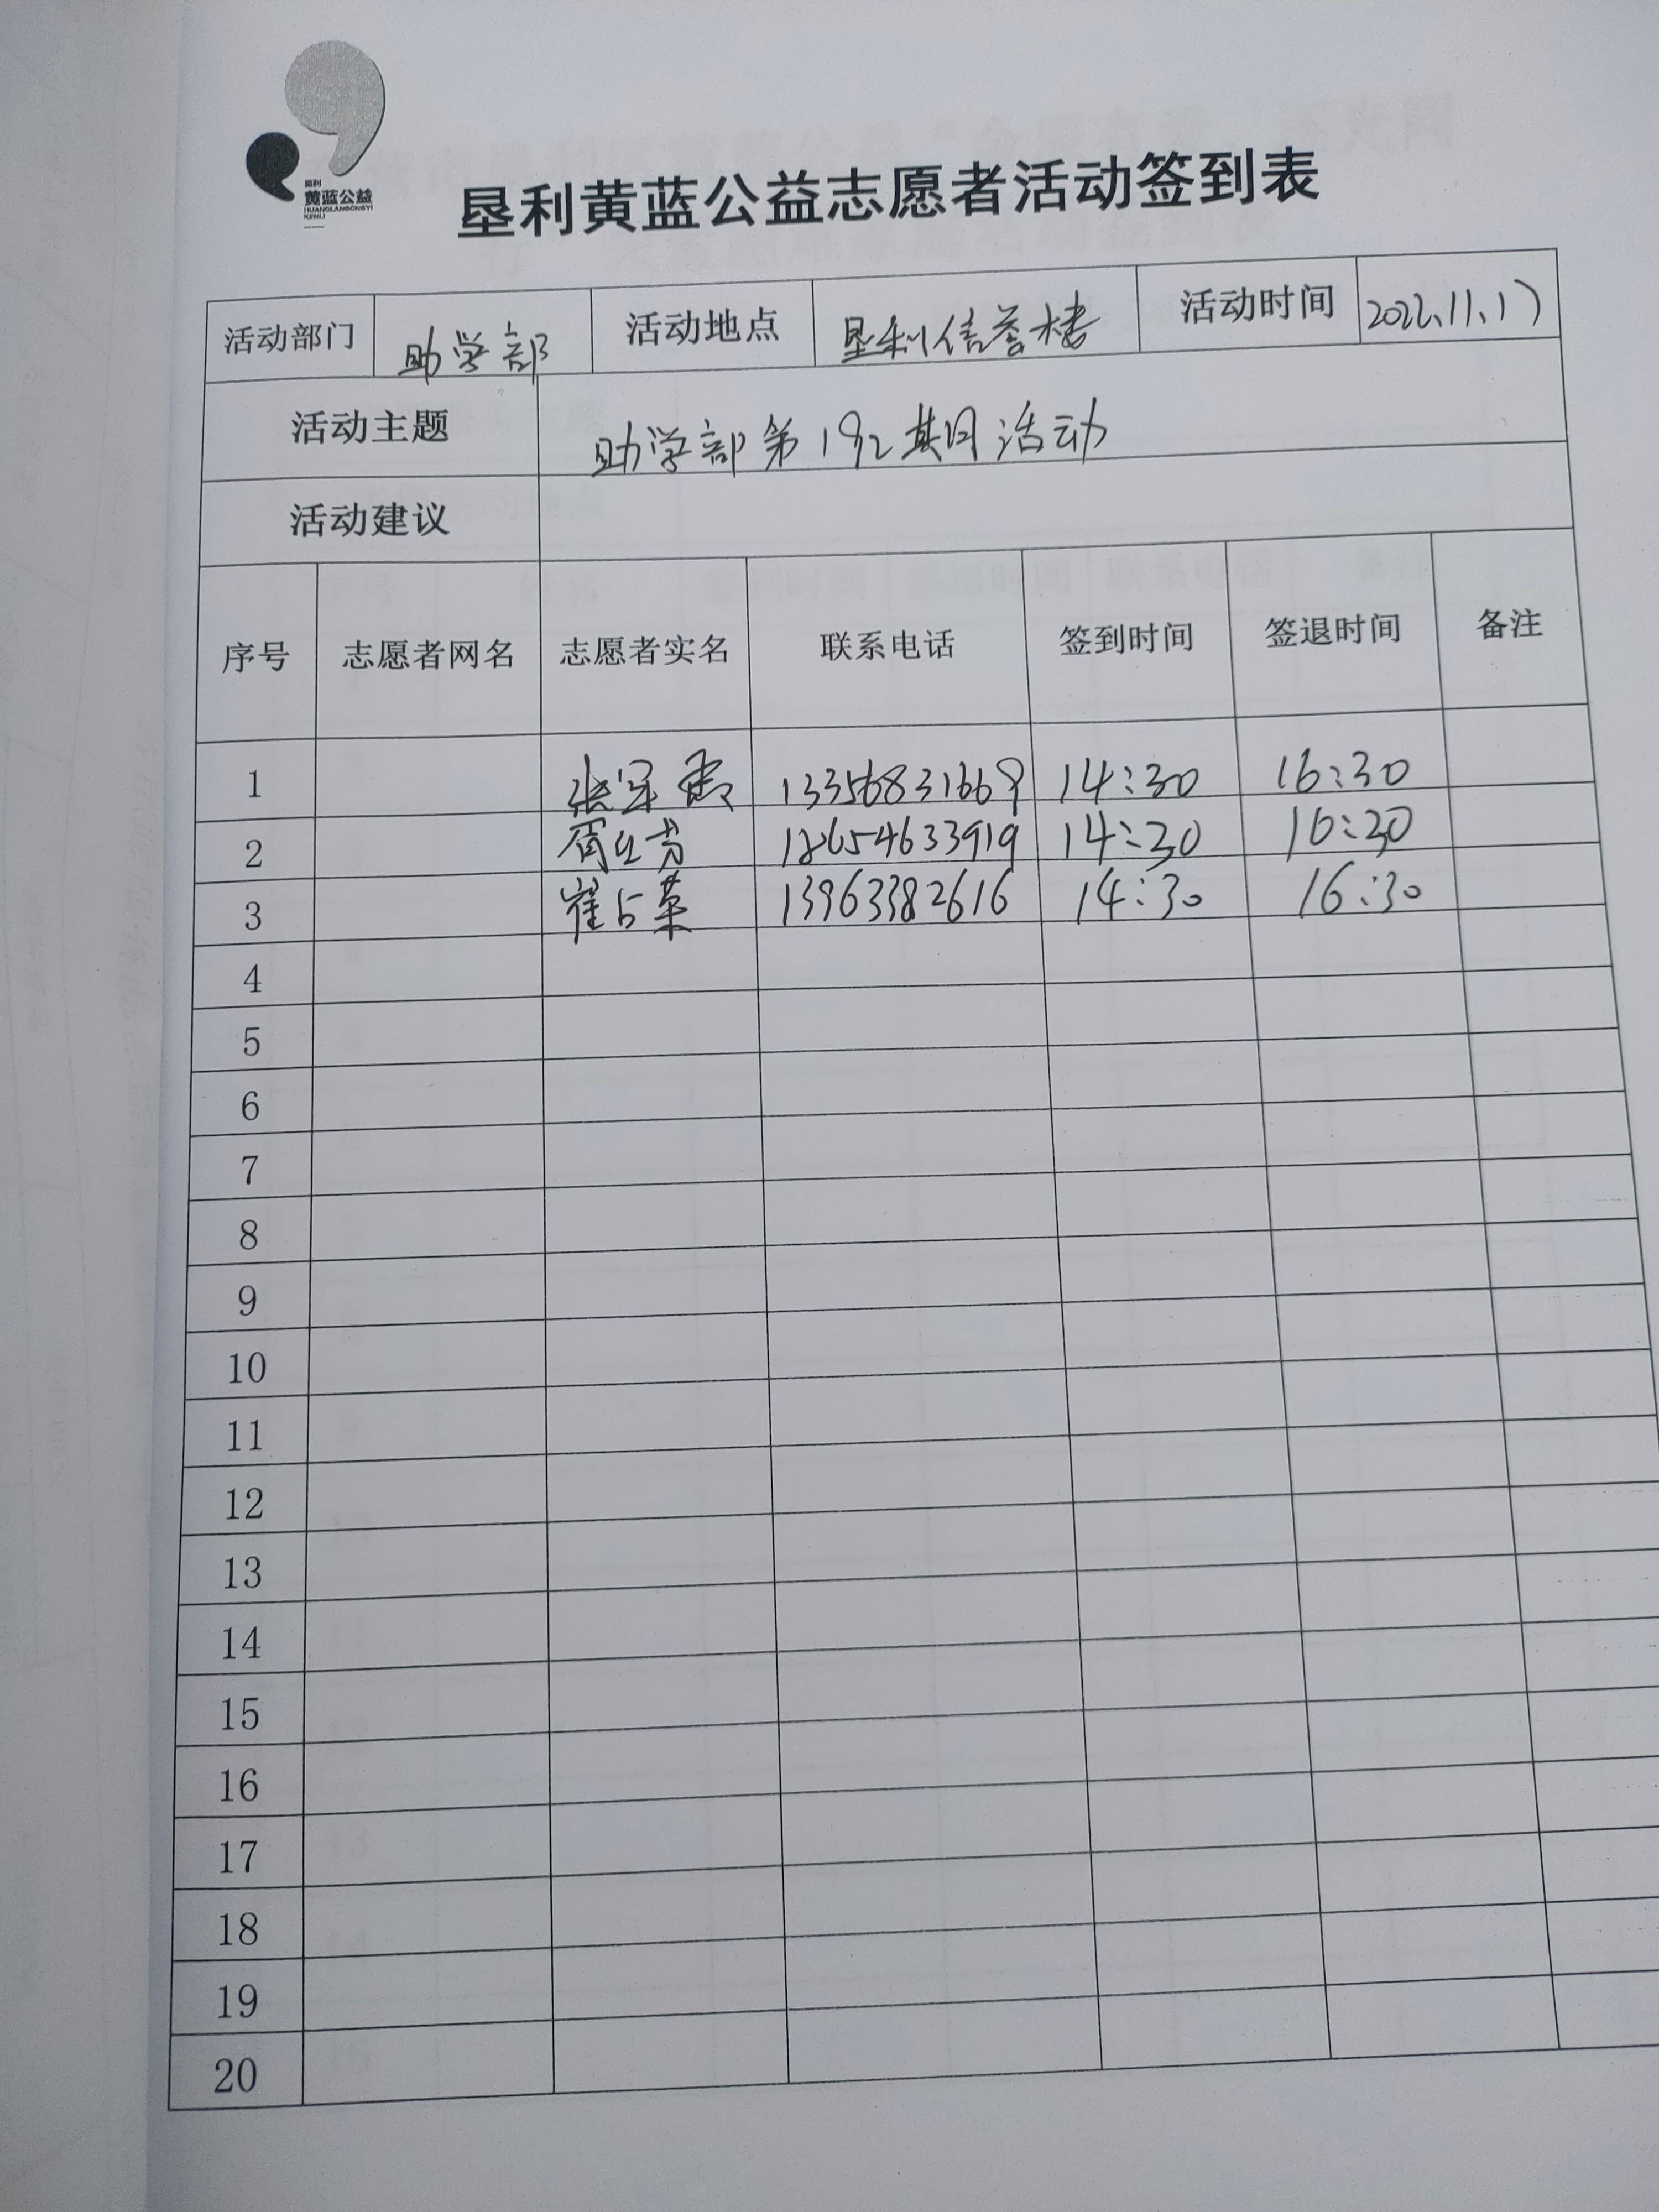 垦利
黄蓝公益
HUANGLANGONGYI
KENLI
垦利黄蓝公益志愿者活动签到表
活动部门 助学部 活动地点 垦利信誉楼 活动时间 2022、11、17
活动主题 助学部第192期活动
活动建议
序号 志愿者网名 志愿者实名 联系电话 签到时间 签退时间 备注
1 张军 13356831669 14:30 16:30
2 14:30 16:30
3 崔占荣 13963382616 14:30 16:30
4
5
6
7
8
9
10
11
12
13
14
15
16
17
18
19
20